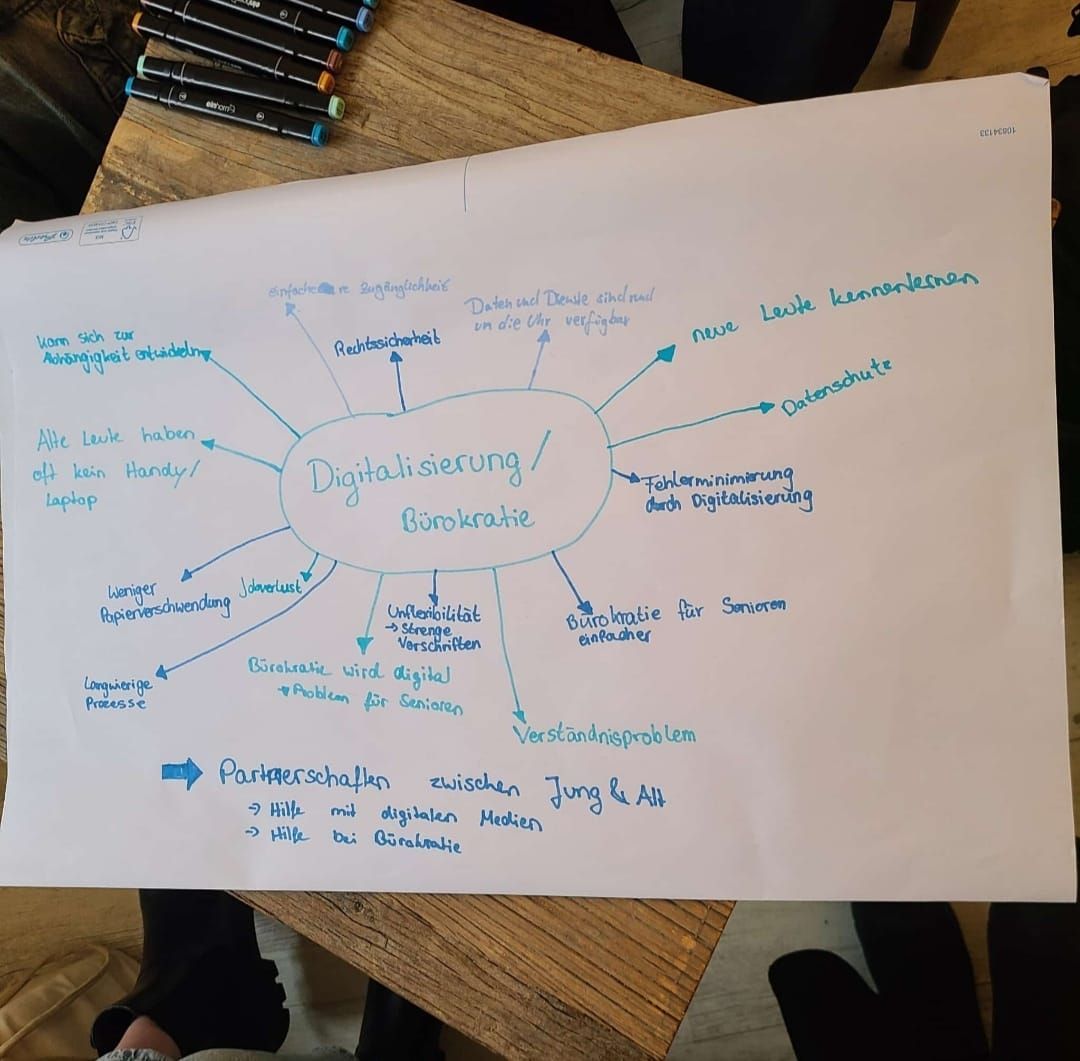 einhorn
10834133
einfachere Zugänglichkeit
Daten und Dienste sind rund
um die Uhr verfügbar
neue Leute kennenlernen
Rechtssicherheit
kann sich zur
Abhängigkeit entwickeln
Datenschutz
Alte Leute haben
oft kein Handy/
Laptop
Digitalisierung/
Bürokratie
Fehlerminimierung
durch Digitalisierung
Weniger
Papierverschwendung
Jobverlust
Unflexibilität
→ Strenge
Vorschriften
Bürokratie für Senioren
einfacher
Bürokratie wird digital
→ Problem für Senioren
Langwierige
Prozesse
Verständnisproblem
➡ Partnerschaften zwischen Jung & Alt
→ Hilfe mit digitalen Medien
→ Hilfe bei Bürokratie